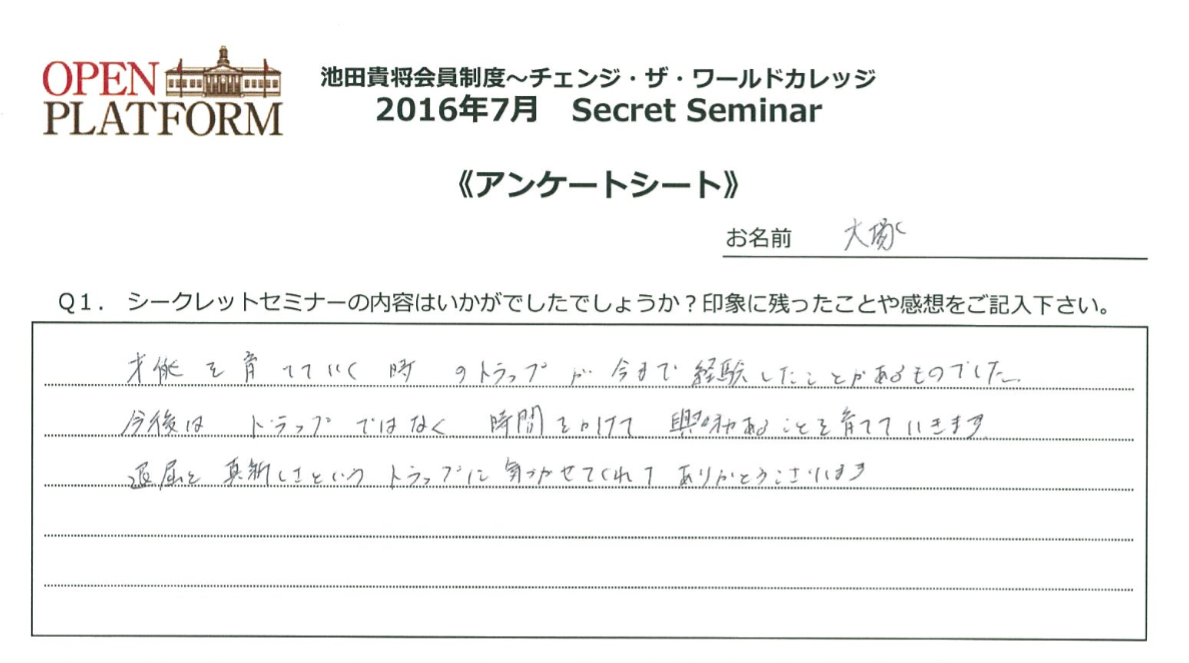 OPEN
PLATFORM
池田貴将会員制度～チェンジ・ザ・ワールドカレッジ
2016年7月 Secret Seminar
《アンケートシート》
お名前 大塚
Q1. シークレットセミナーの内容はいかがでしたでしょうか？印象に残ったことや感想をご記入下さい。
才能を育てていく時のトラップが今まで経験したことがあるものでした。
今後はトラップではなく時間をかけて興味あることを育てていきます
退屈と真新しさというトラップに気づかせてくれてありがとうございます